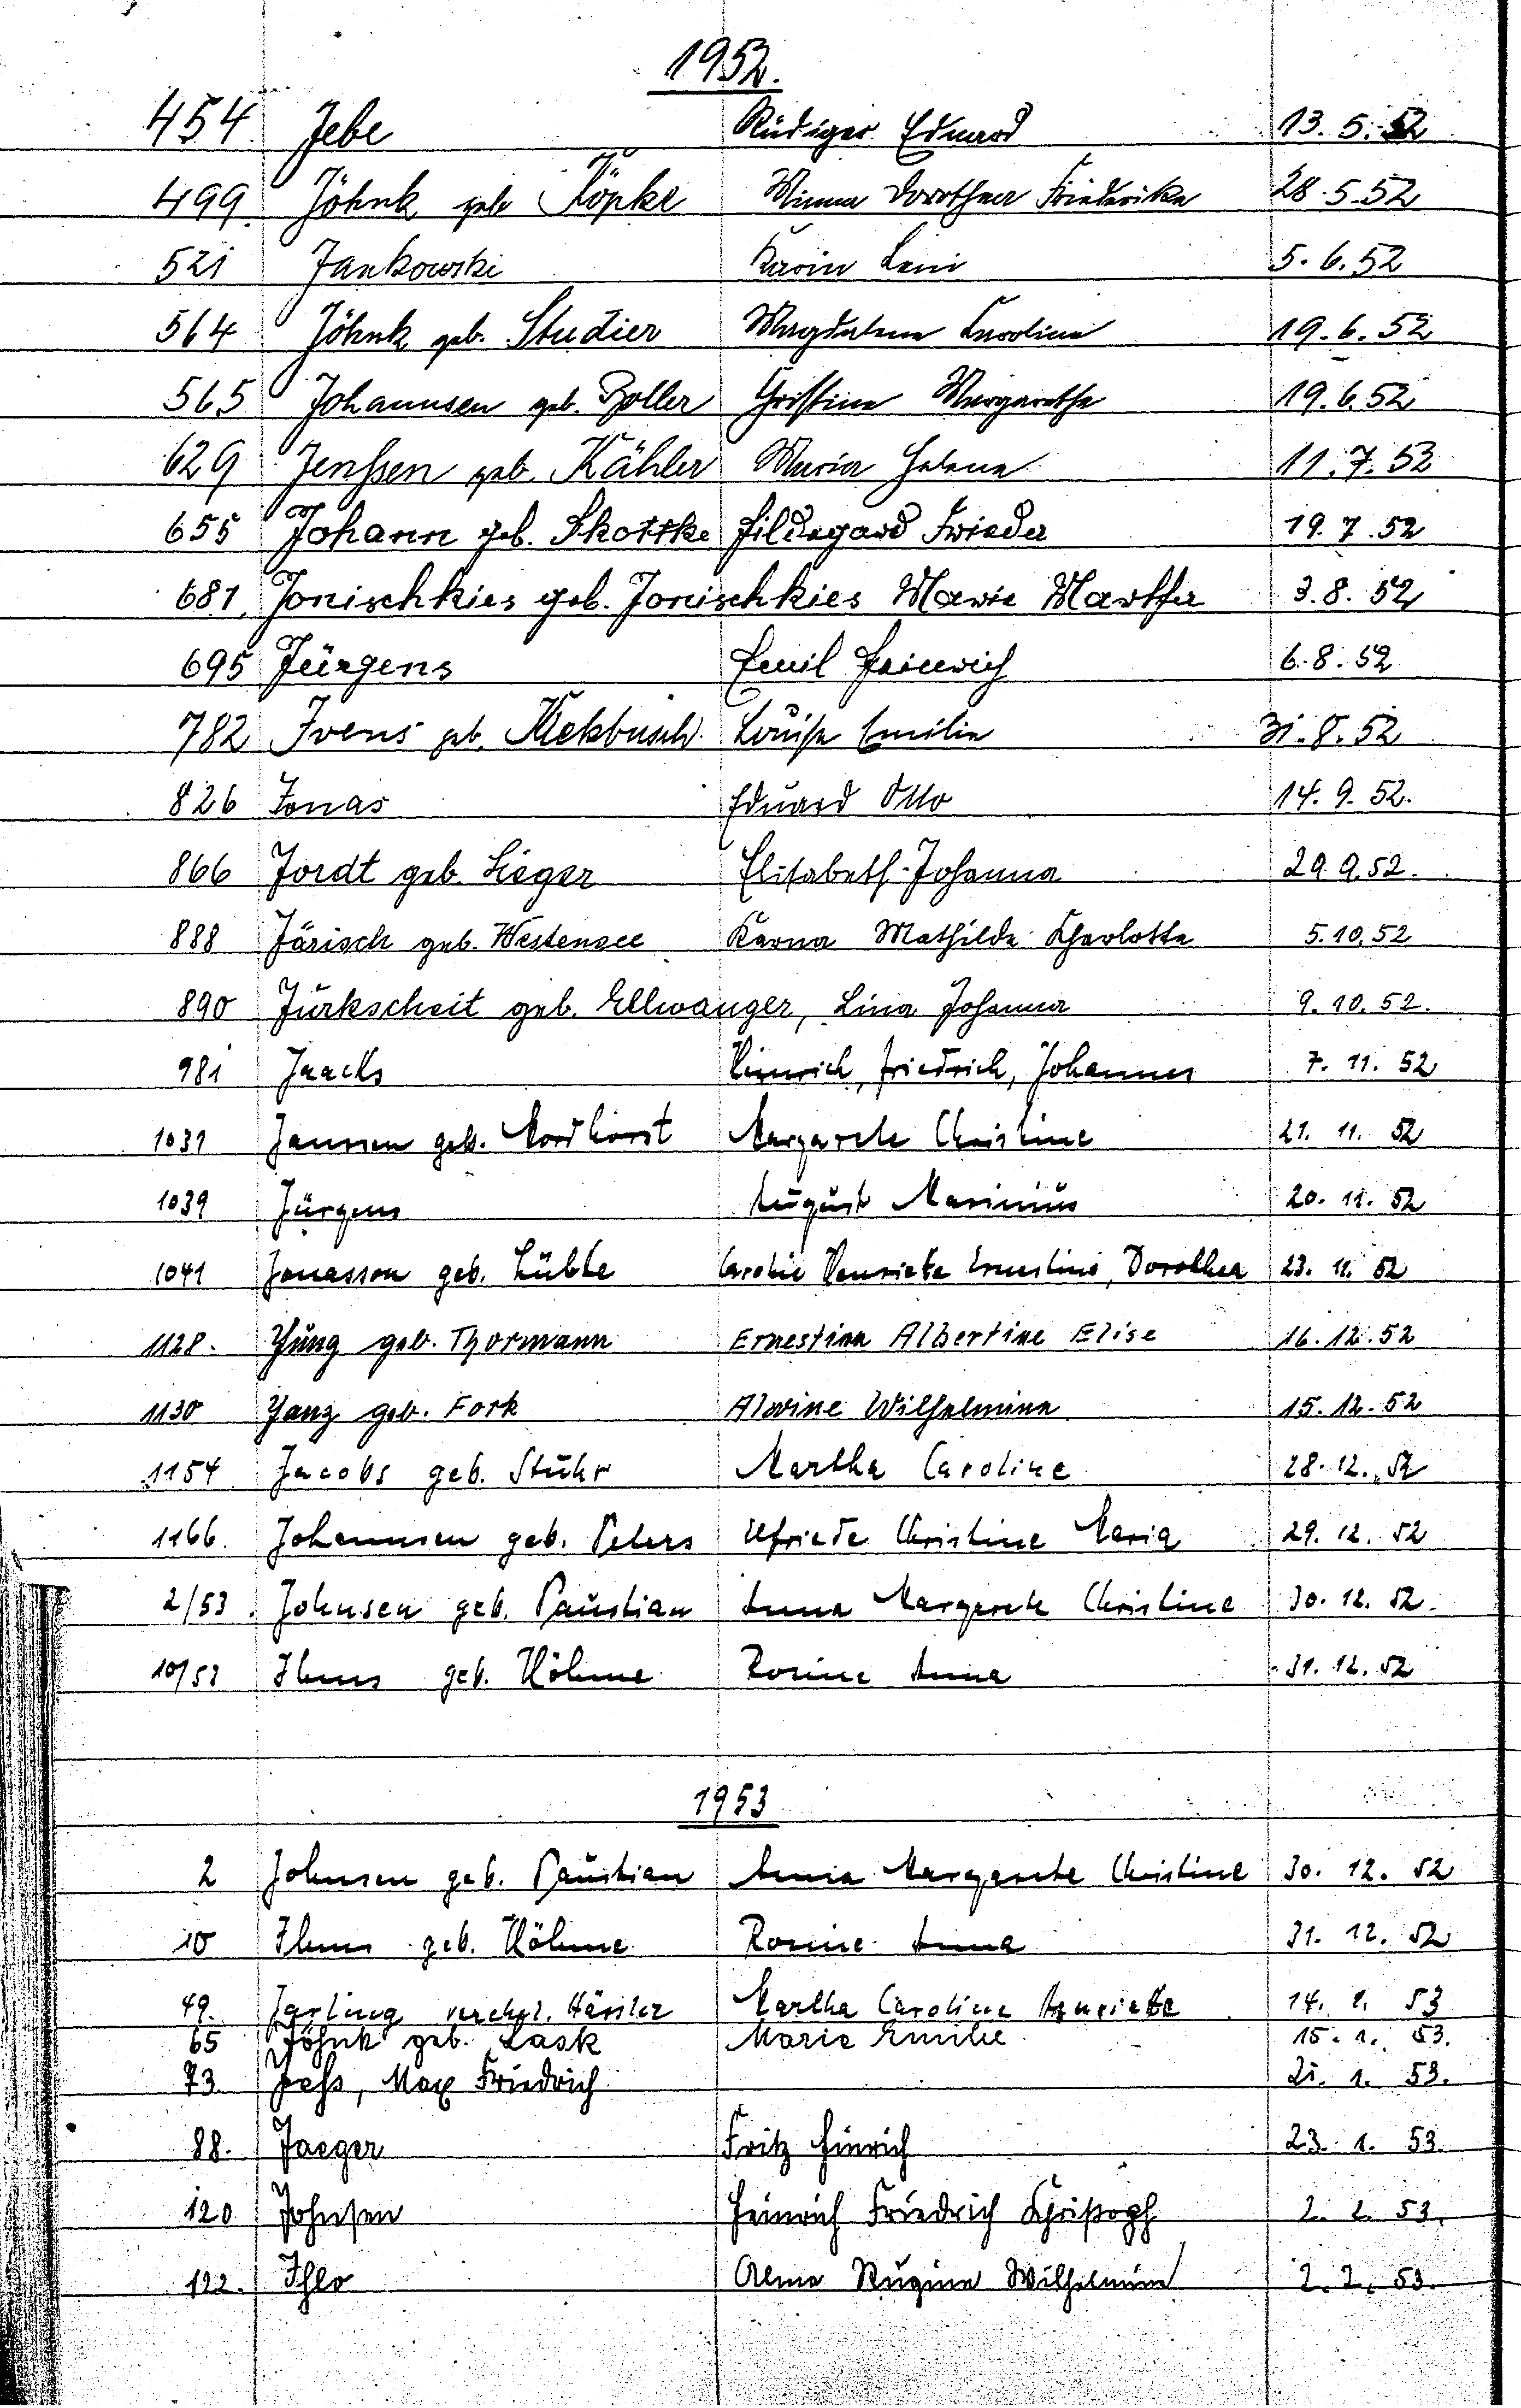 1952.
454 Jebe Rüdiger Eduard 13.5.52
499. Jöhnk geb. Köpke Minna Dorothea Friederike 28.5.52
521 Jankowski Karin Leni 5.6.52
564 Jöhnk geb. Studier Magdalena Karoline 19.6.52
565 Johannsen geb. Boller Christine Margaretha 19.6.52
629 Jenssen geb. Kähler Maria Helene 11.7.52
655 Johann geb. Skottke Hildegard Frieda 19.7.52
681, Jonischkies geb. Jonischkies Marie Martha 3.8.52
695 Jürgens Emil Heinrich 6.8.52
782 Ivens geb. Klekbusch Louise Emilie 31.8.52
826 Jonas Eduard Otto 14.9.52.
866 Jordt geb. Sieger Elisabeth-Johanna 29.9.52.
888 Järisch geb. Westensee Karna Mathilde Charlotte 5.10.52
890 Jurkscheit geb. Ellwanger, Lina Johanna 9.10.52.
981 Jaacks Hinrich, Friedrich, Johannes 7.11.52
1031 Janssen geb. Nordhorst Margarete Christine 21.11.52
1039 Jürgens August Marinius 20.11.52
1041 Jonasson geb. Lübke Henriette Ernestine, Dorothea 23.11.52
1128. Jung geb. Thormann Ernestine Albertine Elise 16.12.52
1130 Janz geb. Fork Alwine Wilhelmine 15.12.52
1154 Jacobs geb. Stuhr Martha Caroline 28.12.52
1166. Johannsen geb. Peters Elfriede Christine Maria 29.12.52
2/53. Johnsen geb. Paustian Anna Margarete Christine 30.12.52.
10/53 Ihms geb. Höhme Rosine Anna 31.12.52
1953
2 Johnsen geb. Paustian Anna Margarete Christine 30.12.52
10 Ihms geb. Höhme Rosine Anna 31.12.52
49. Jarling verehel. Hässler Martha Caroline Henriette 14.1.53
65 Jöhnk geb. Lask Marie Emilie 15.1.53.
73. Jess, Max Friedrich 21.1.53.
88. Jaeger Fritz Hinrich 23.1.53.
120 Johnsen Heinrich Friedrich Christoph 2.2.53.
122. Ihlo Alma Regina Wilhelmine 2.2.53.